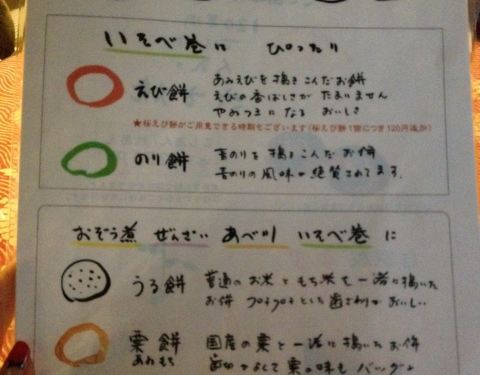 いそべ巻に ぴったり
えび餅
あみえびを搗きこんだお餅
えびの香ばしさが たまいません
やみつきになる おいしさ
★桜えび餅がご用意できる時期もございます(桜えび餅1個につき120円追加)
のり餅
青のりを搗きこんだお餅
青のりの風味が絶賛されてます.
おぞう煮 ぜんざい あべ川 いそべ巻に
うる餅
普通のお米ともち米を一諸に搗いた
お餅 プチプチといった歯ざわりがおいしい
粟餅
あわもち
国産の粟と一諸に搗いたお餅